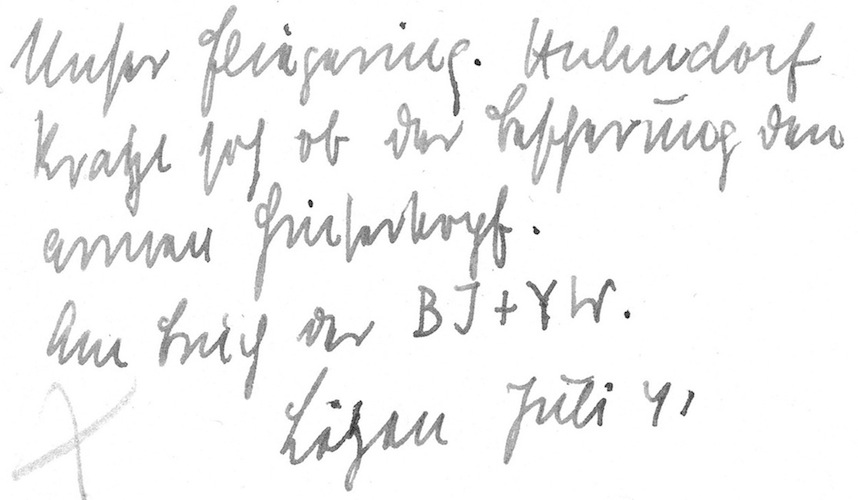 Unser Fliegering.
Kratzt sich ob der Bescherung den
armen Hinterkopf.
Am Bruch der BJ+YW.
Lötzen Juli 41